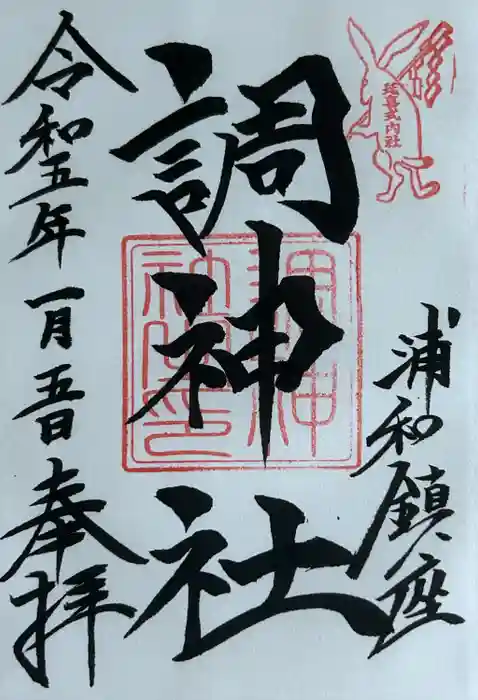 延喜式内社
浦和鎮座
調神社
令和五年一月五日奉拝